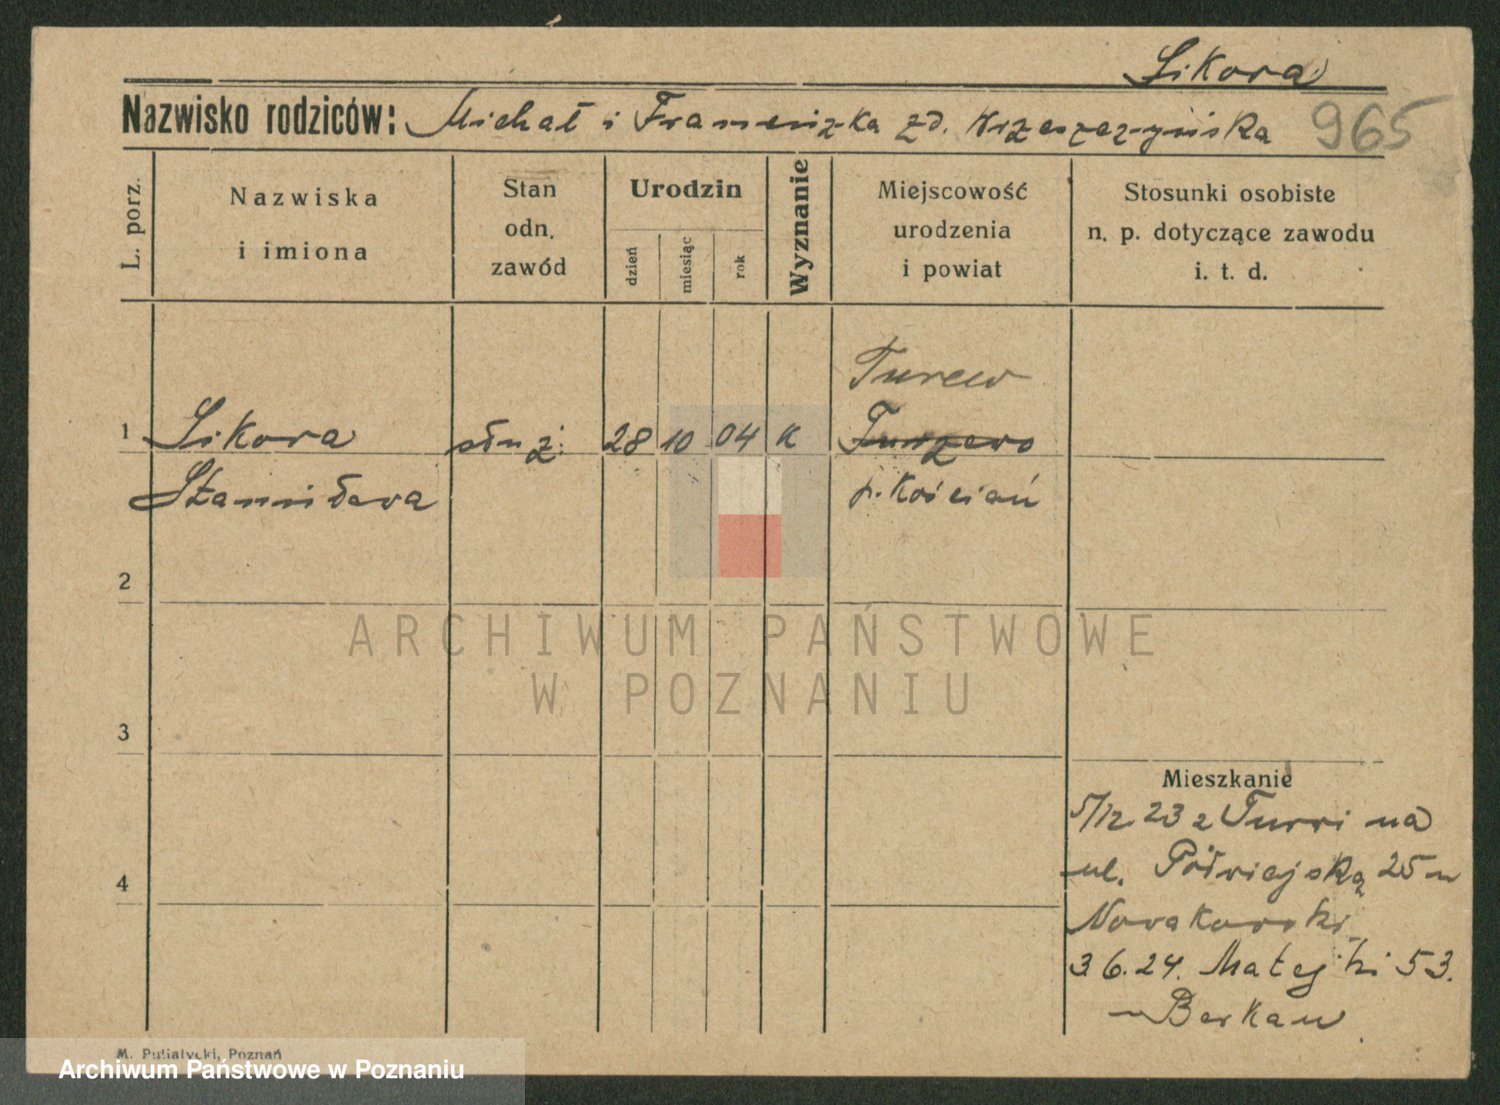 Sikora
Nazwisko rodziców: Michał i Franciszka zd. Wrzeszczyńska
965
L. porz.
Nazwiska
i imiona
Stan
odn.
zawód
Urodzin
dzień
miesiąc
rok
Wyznanie
Miejscowość
urodzenia
i powiat
Stosunki osobiste
n. p. dotyczące zawodu
i. t. d.
Turew
1 Sikora służ. 28 10 04 K Turzewo
Stanisława p. Kościan
2
ARCHIWUM PAŃSTWOWE
W POZNANIU
3
Mieszkanie
5/12.23 z Turwi na
4 ul. Półwiejską 25 u
Nowakowski
3.6.24. Matejki 53.
u
M. Putiatycki, Poznań
Archiwum Państwowe w Poznaniu